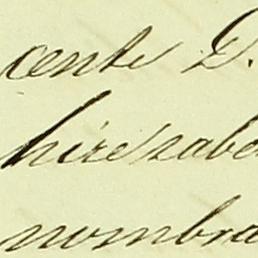 cente D.
hiresabe
nombra